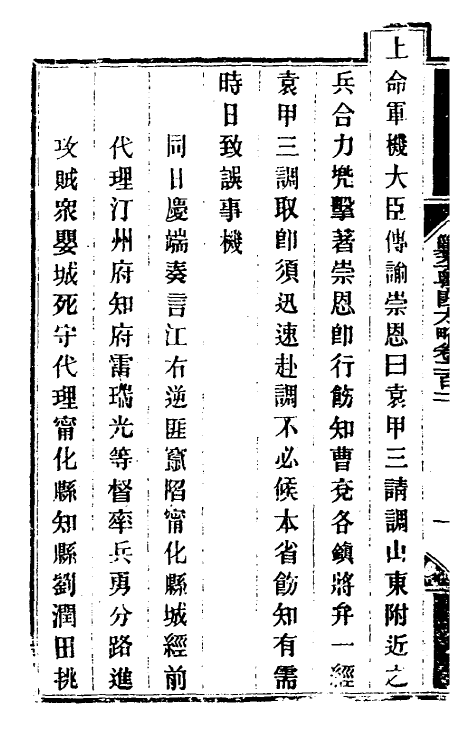 上命軍機大臣傳諭崇恩曰袁甲三請調山東附近之
兵合力兜擊著崇恩卽行飭知曹兗各鎮將弁一經
袁甲三調取卽須迅速赴調不必候本省飭知有需
時日致誤事機
同日慶端奏言江右逆匪竄陷甯化縣城經前
代理汀州府知府雷瑞光等督率兵勇分路進
攻賊衆嬰城死守代理甯化縣知縣劉潤田挑